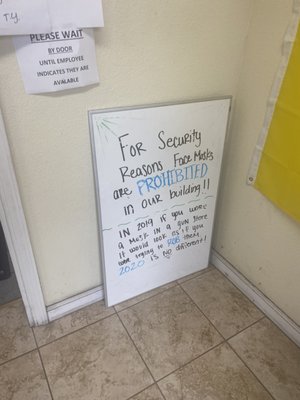 T.Y.
PLEASE WAIT
BY DOOR
UNTIL EMPLOYEE
INDICATES THEY ARE
AVALABLE
For Security
Reasons Face Masks
are PROHIBITED
in our building!!
IN 2019 if you wore
a Mask IN a gun store
it would look as if you
were trying to ROB them
2020 is no different!